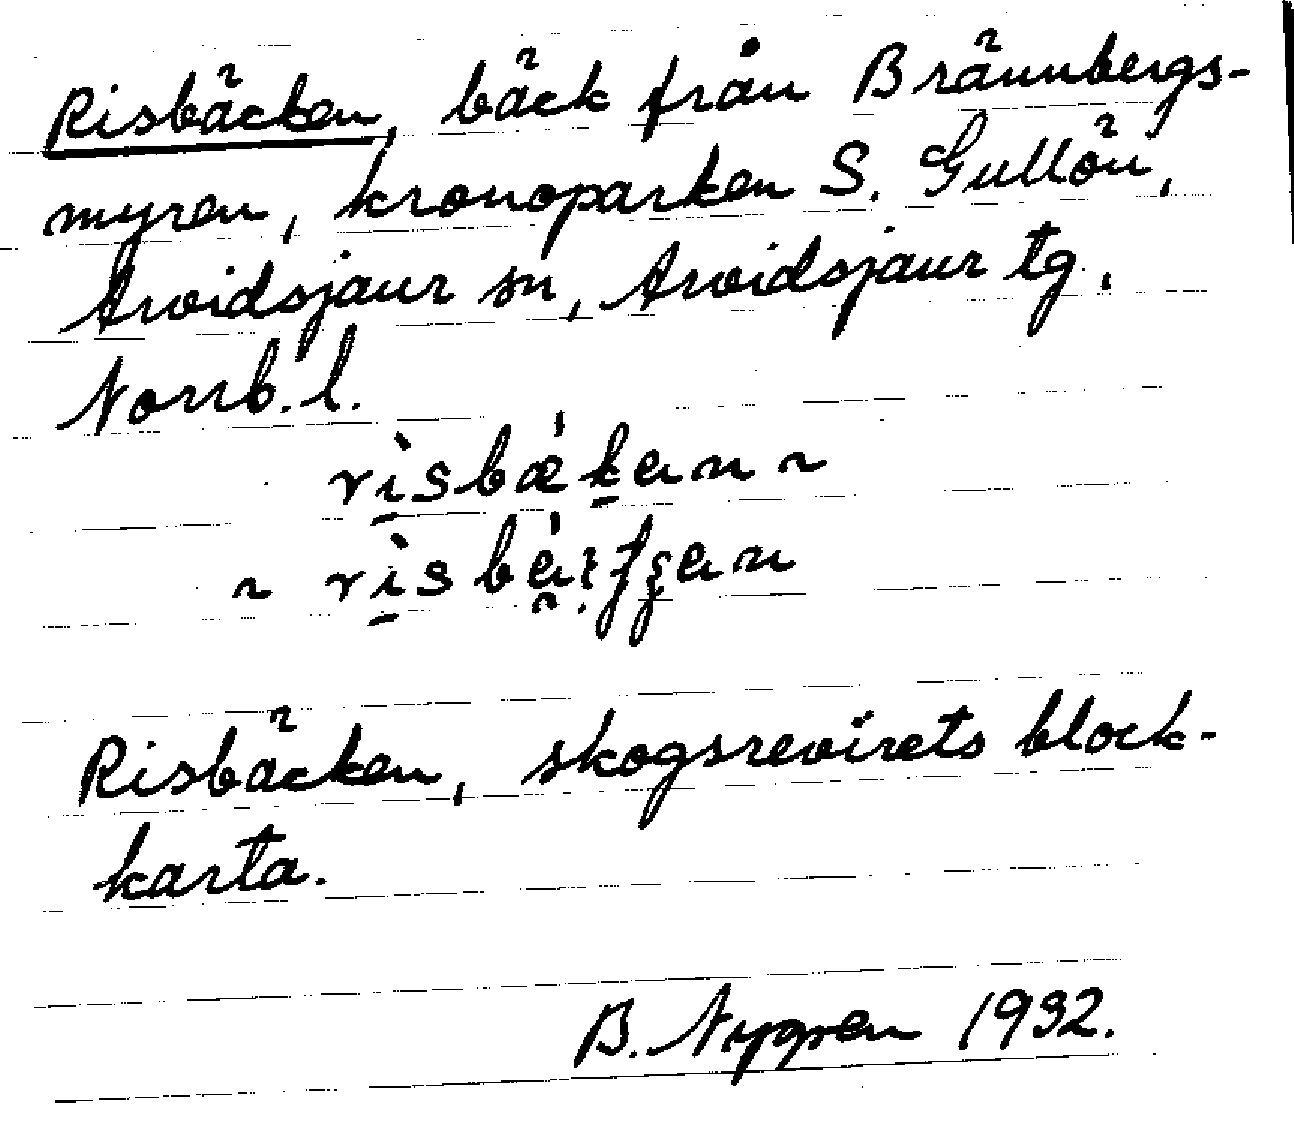 Risbäcken, bäck från Brännbergs-
myren, kronoparken S. Gullön,
Arvidsjaur sn, Arvidsjaur tg.
Norrb. l.
Risbäcken, skogsrevirets block-
karta.
B. Nygren 1932.